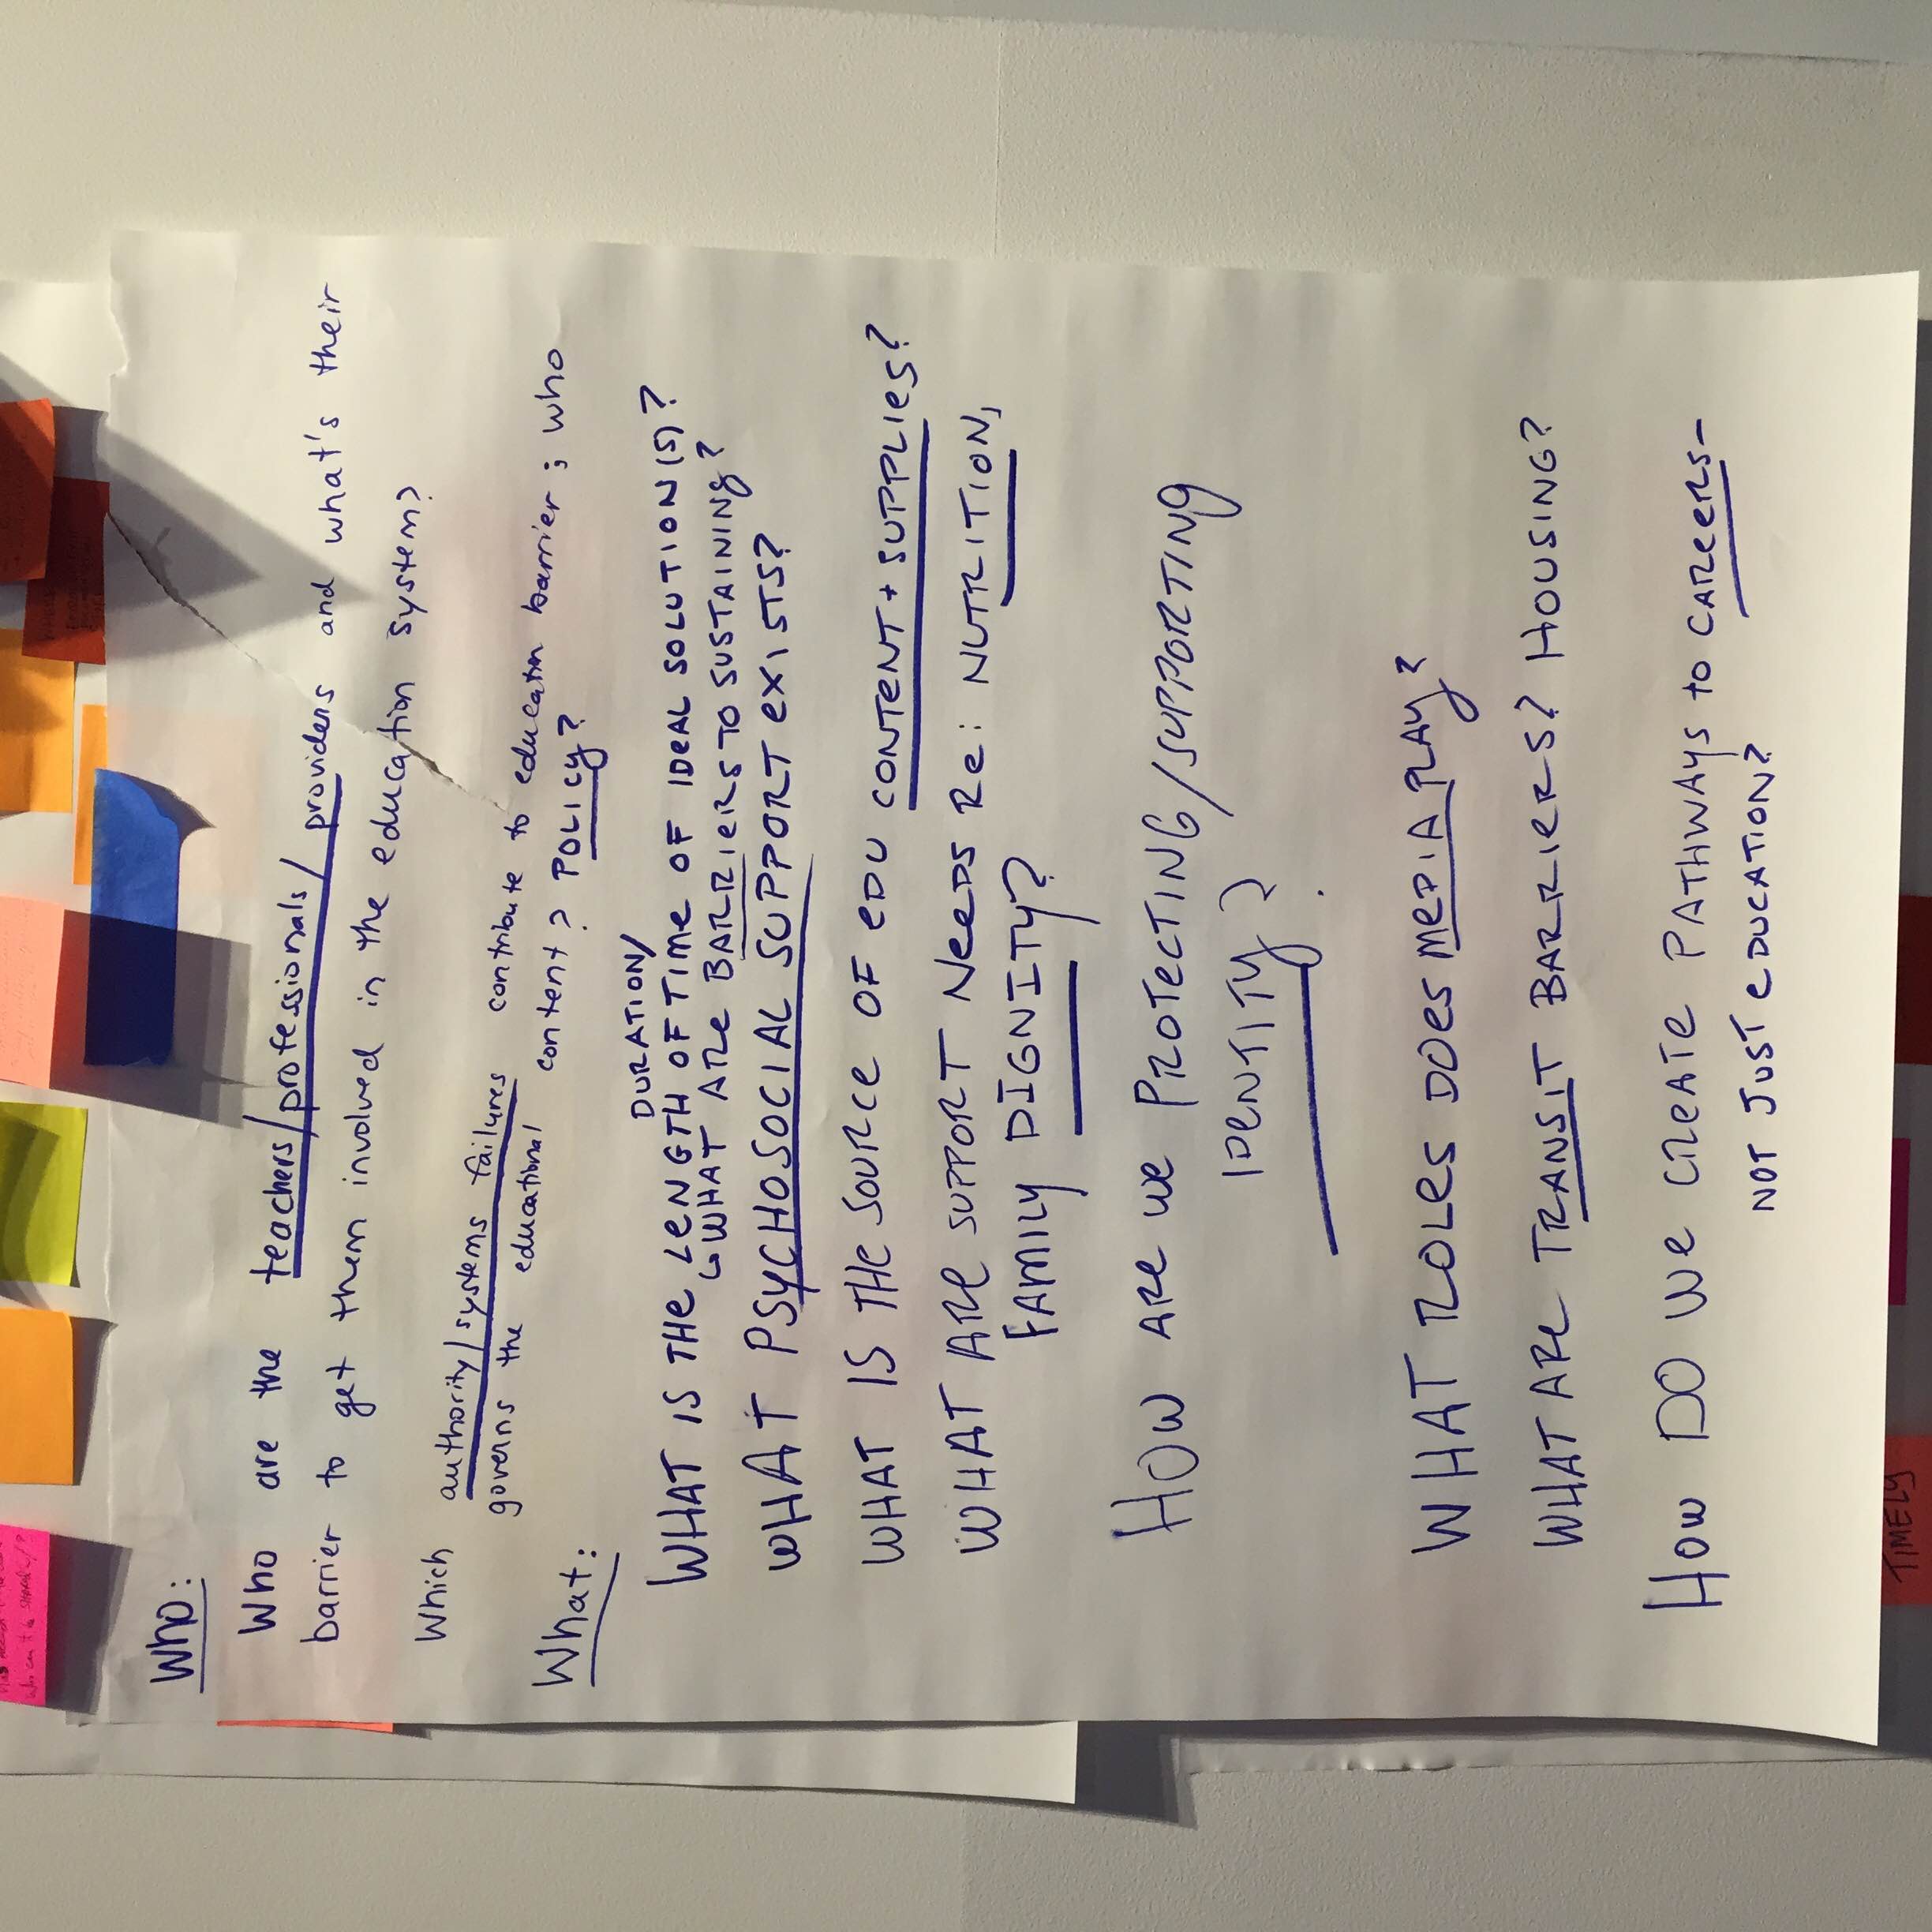 Who can it be shared w/?
Who:
Who are the teachers/professionals/ providers and what's their
barrier to get them involved in the education system?
Which authority/systems failures contribute to education barrier; who
governs the educational content? POLICY?
What:
DURATION/
WHAT IS THE LENGTH OF TIME OF IDEAL SOLUTION(S)?
↳ WHAT ARE BARRIERS TO SUSTAINING?
WHAT PSYCHOSOCIAL SUPPORT EXISTS?
WHAT IS THE SOURCE OF EDU CONTENT + SUPPLIES?
WHAT ARE SUPPORT NEEDS RE: NUTRITION,
FAMILY DIGNITY?
HOW ARE WE PROTECTING/SUPPORTING
IDENTITY?
WHAT ROLES DOES MEDIA PLAY?
WHAT ARE TRANSIT BARRIERS? HOUSING?
HOW DO WE CREATE PATHWAYS to CAREERS-
NOT JUST EDUCATION?
TIMELY